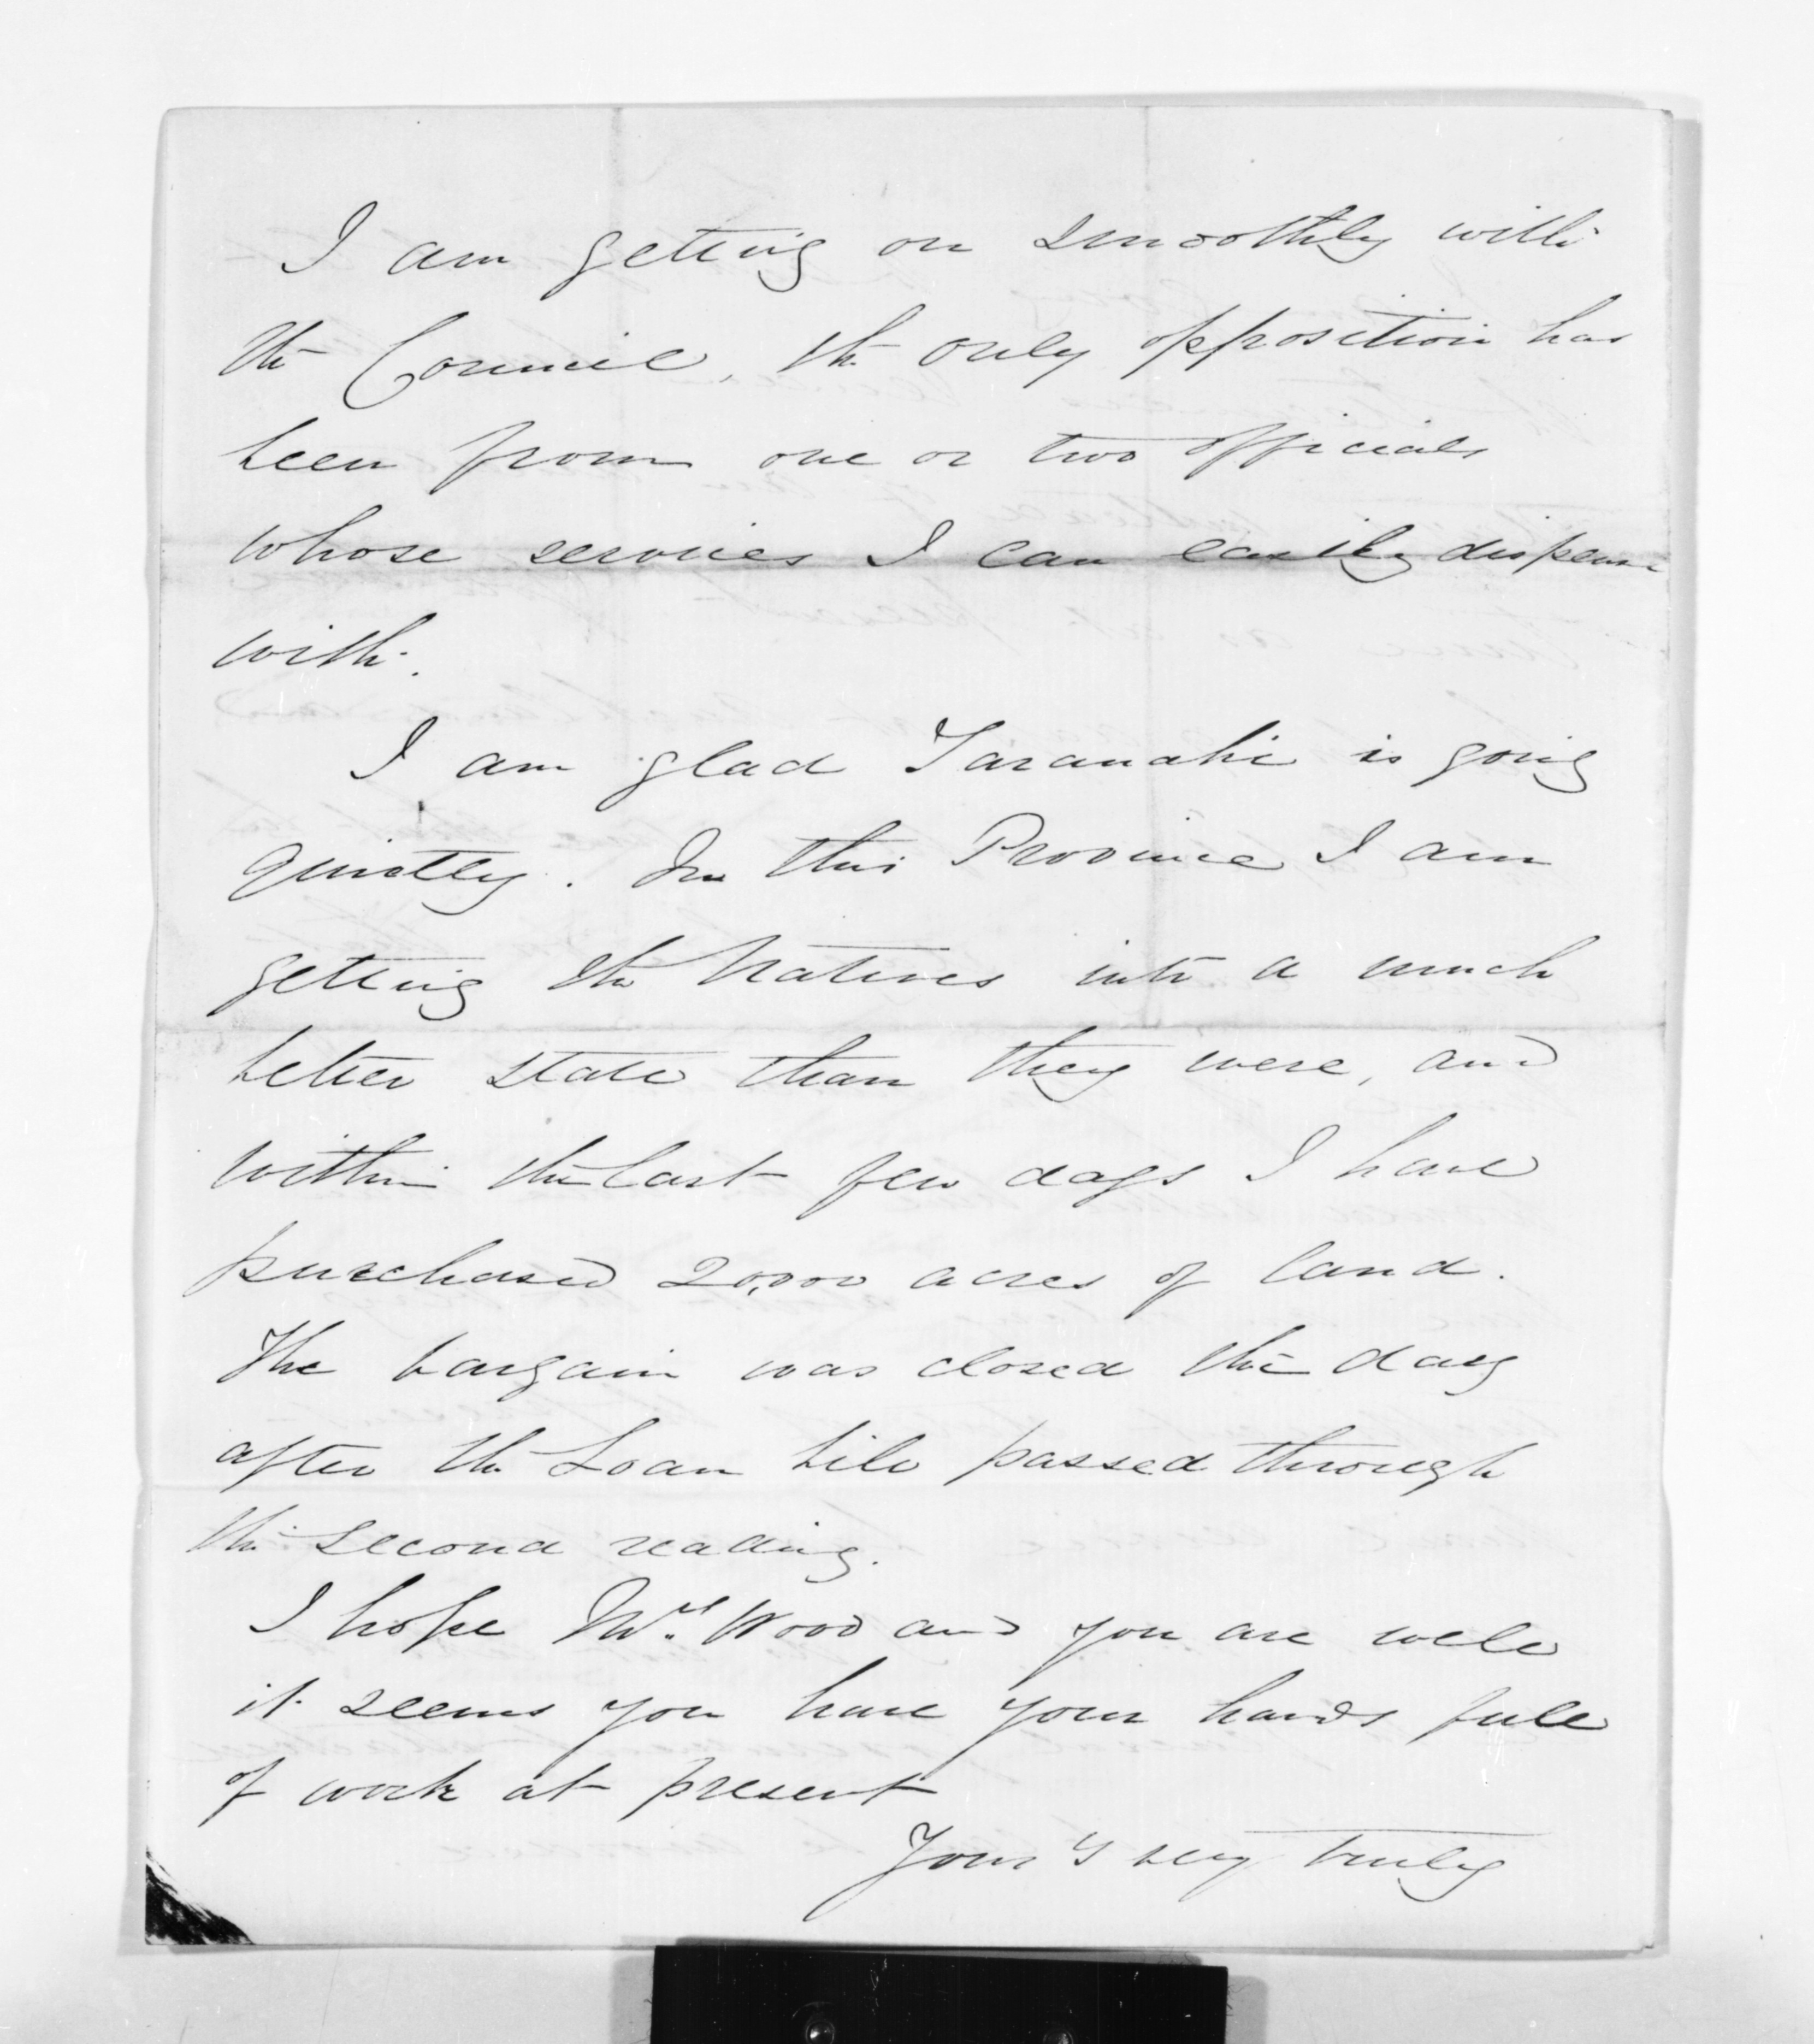 I am getting on smoothly with
the Council, the only opposition has
been from one or two officials
whose services I can easily dispense
with.
I am glad Taranaki is going
quietly. In this Province I am
getting the Natives into a much
better state than they were, and
within the last few days I have
purchased 20,000 acres of land.
The bargain was closed the day
after the Loan bill passed through
the second reading.
I hope Mrs. Wood and you are well
it seems you have your hands full
of work at present
Your's very truly